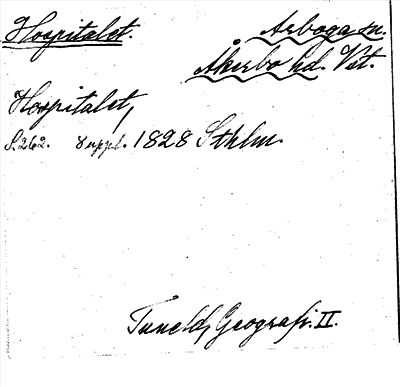 Hospitalet. Arboga sn.
Åkerbo hd. Vstm.
Hospitalet,
S. 262. Suppl. 1828 Sthlm.
Tuneld, Geografi. II.